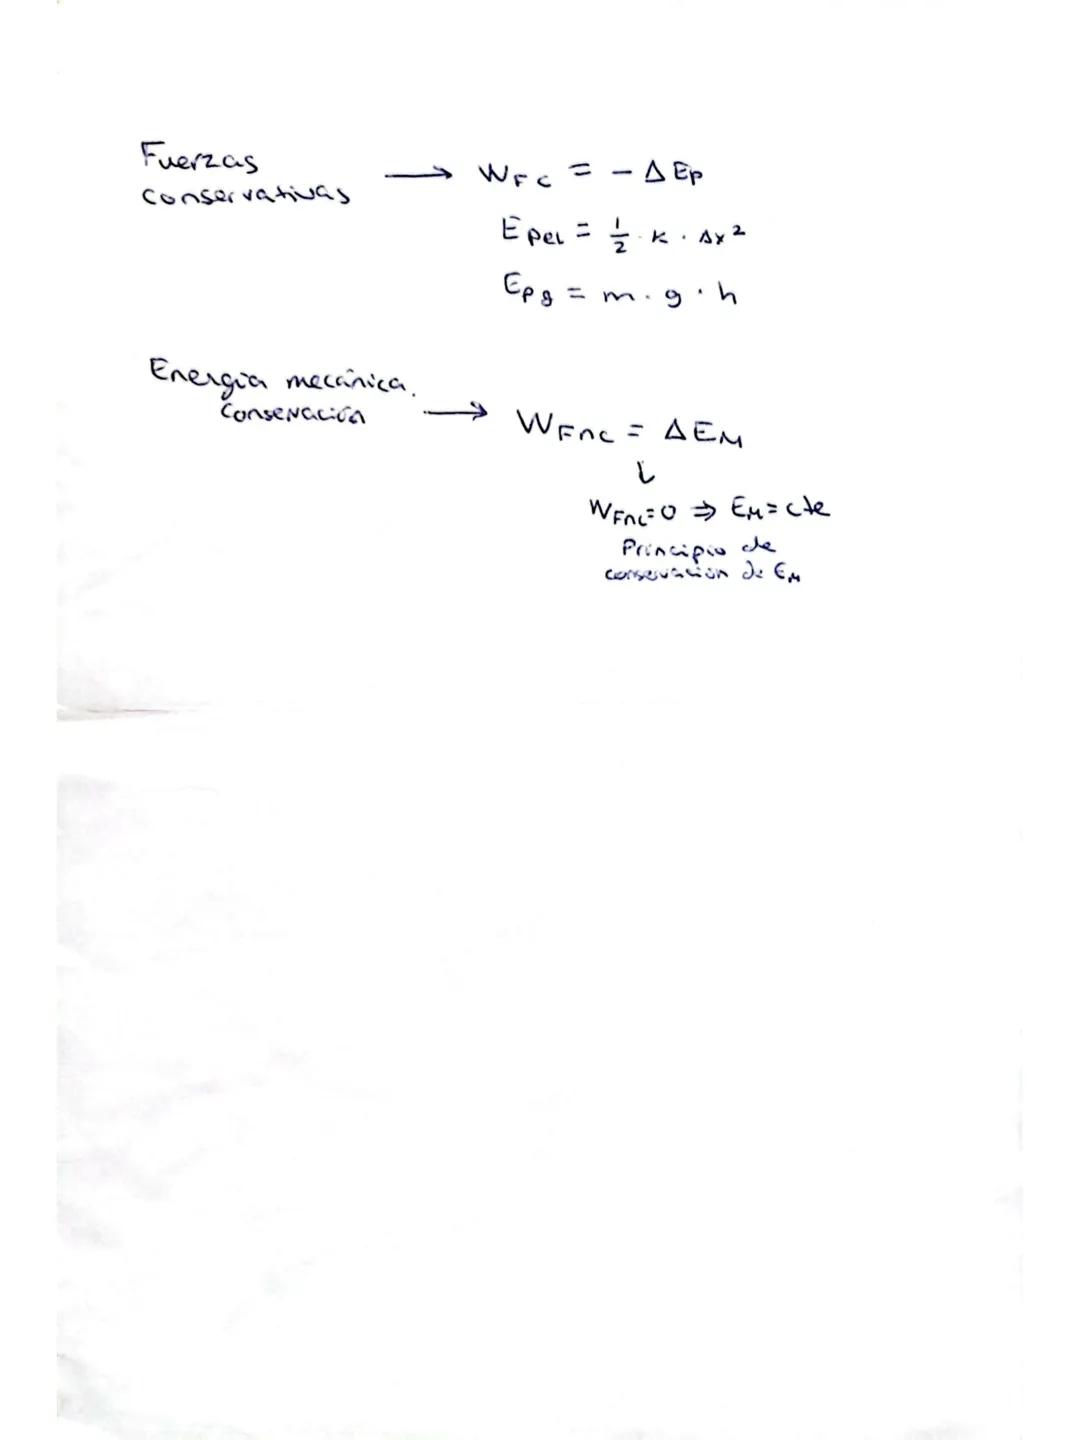 Fuerzas
conservativas → W_Fc = - ΔEp
Epel = 1/2 · K · Δx²
Epg = m · g · h
Energía mecánica.
Conservación → W_Fnc = ΔE_M
↓
W_Fnc=0 ⇒ E_M = cte
Principio de
conservación de E_M